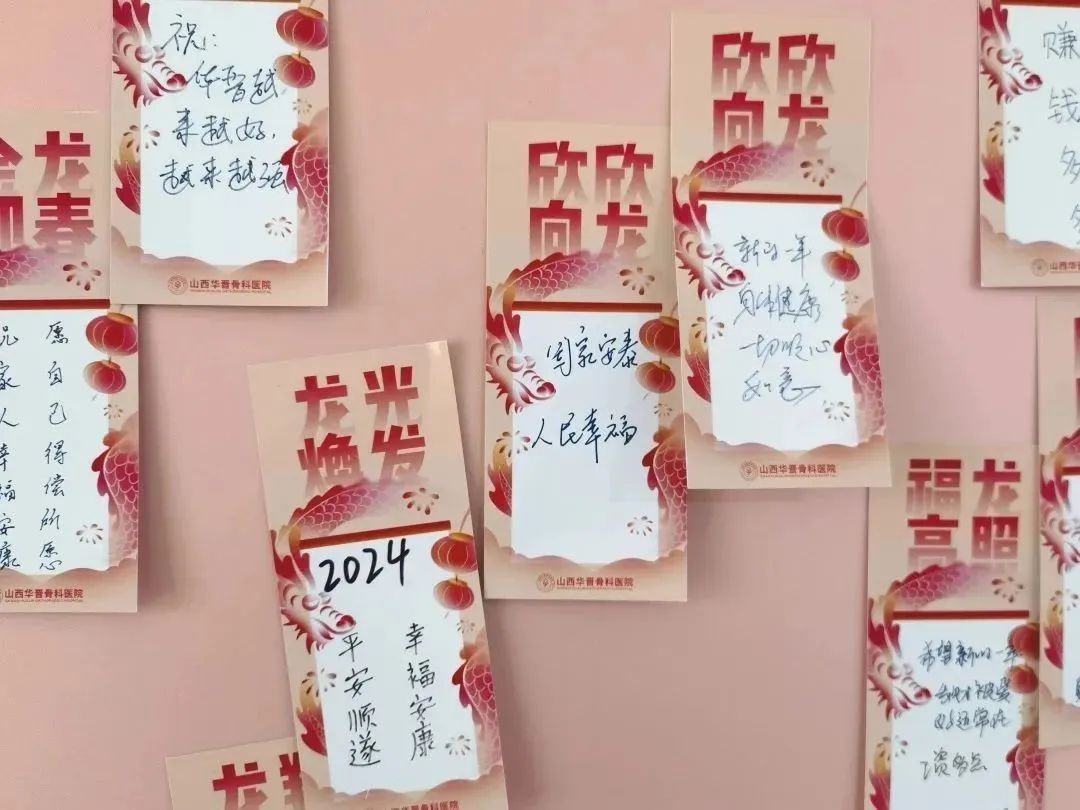 祝:
华晋越
来越好,
越来越强
山西华晋骨科医院
金龙
迎春
祝家人幸福安康
愿自己得偿所愿
山西华晋骨科医院
龙光
焕发
2024
平安顺遂
幸福安康
欣欣
向龙
国家安泰
人民幸福
山西华晋骨科医院
欣欣
向龙
新的一年
身体健康
一切顺心
如意
山西华晋骨科医院
赚
钱
多
多
山西
福龙
高照
希望新的一年
好运常在
龙